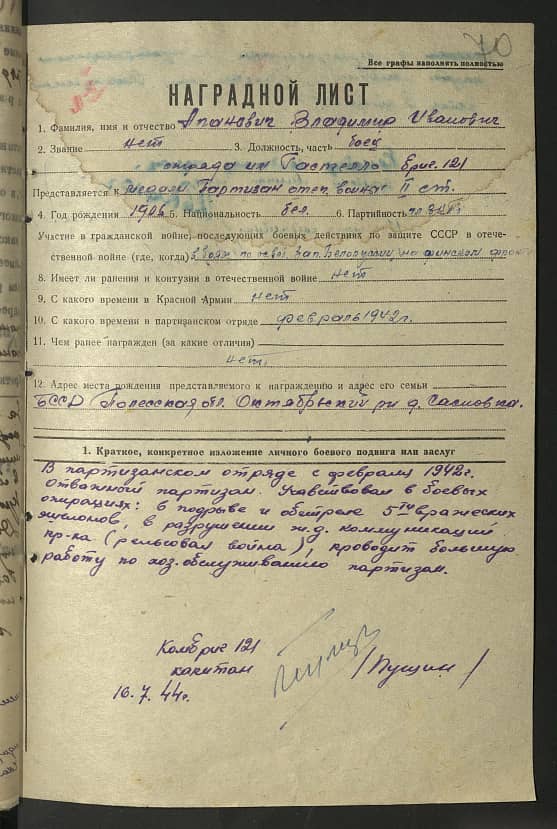 70
Все графы заполнять полностью
НАГРАДНОЙ ЛИСТ
1. Фамилия, имя и отчество Апанович Владимир Иванович
2. Звание нет 3. Должность, часть боец
отряда им Гастелло бриг. 121
Представляется к медали Партизан отеч. войны II ст.
4. Год рождения 5. Национальность бел. 6. Партийность
Участие в гражданской войне, последующих боевых действиях по защите СССР в отече-
ственной войне (где, когда) Зап. Белоруссии на финском
8. Имеет ли ранения и контузии в отечественной войне нет
9. С какого времени в Красной Армии нет
10. С какого времени в партизанском отряде февраль 1942г.
11. Чем ранее награжден (за какие отличия)
нет.
12. Адрес места рождения представляемого к награждению и адрес его семьи
БССР Полесская обл. Октябрьский д.
1. Краткое, конкретное изложение личного боевого подвига или заслуг
В партизанском отряде с февраля 1942г.
Отважный партизан. Участвовал в боевых
операциях: в подрыве и обстреле 5ти вражеских
эшелонов, в разрушении ж.д. коммуникаций
пр-ка (рельсовая война), проводит большую
работу по хоз. обслуживанию партизан.
Комбриг 121
капитан /Пущин/
16.7.44г.